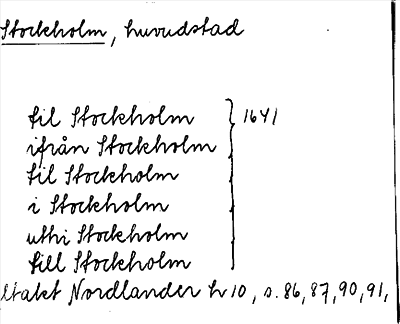 Stockholm, huvudstad
til Stockholm } 1641
ifrån Stockholm
til Stockholm
i Stockholm
uthi Stockholm
till Stockholm
Nordlander h 10, s. 86, 87, 90, 91,